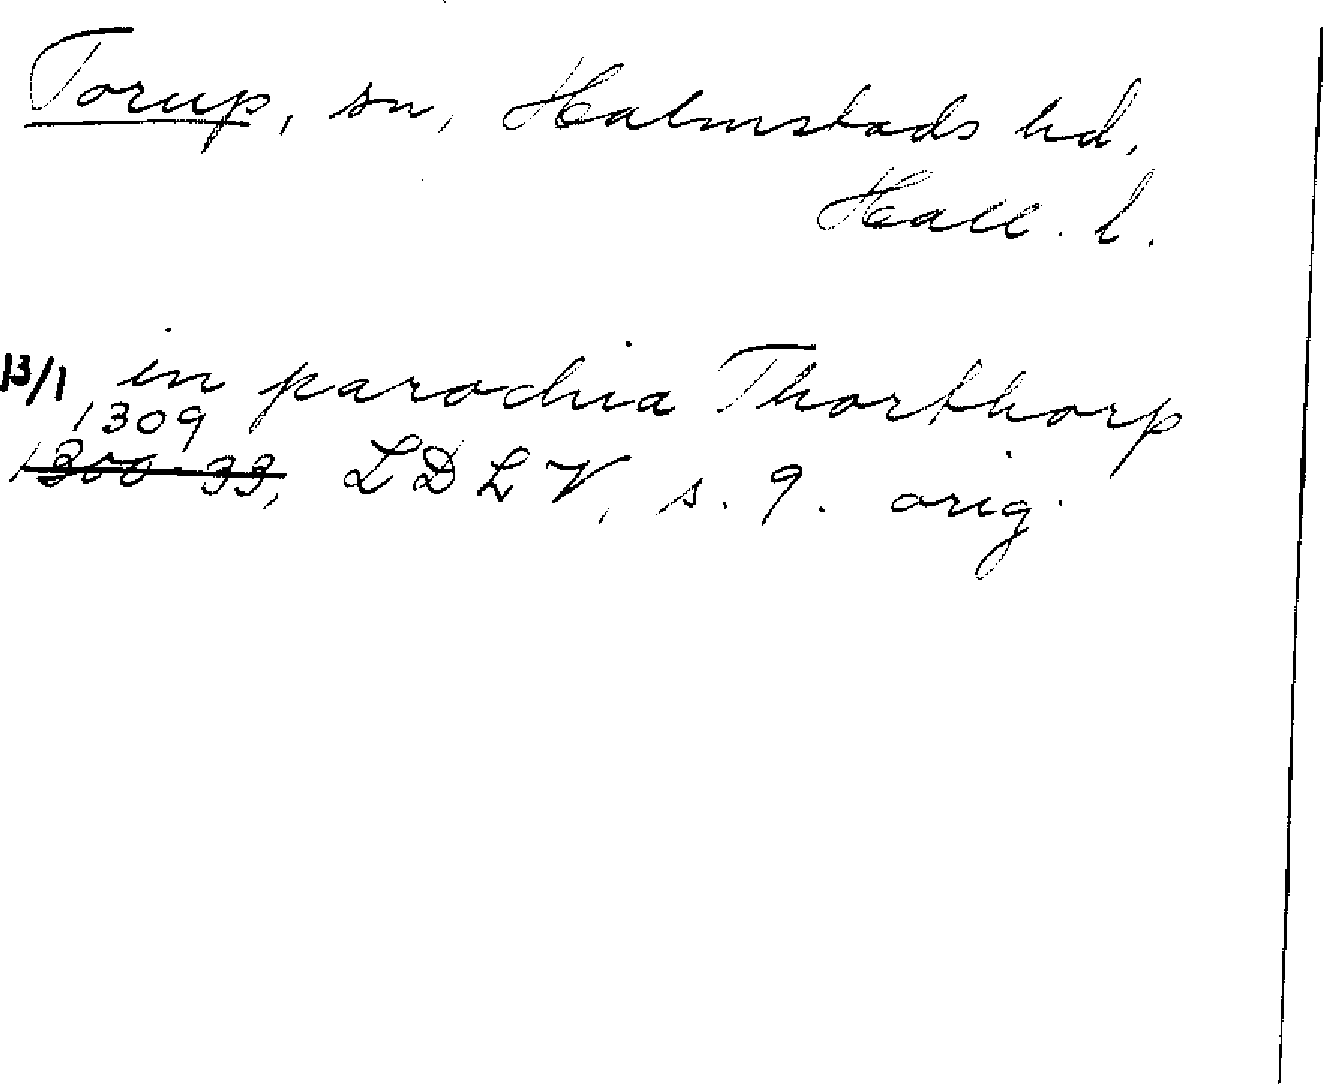 Torup, sn, Halmstads hd,
Hall. l.
13/1 in parochia Thorthorp
1309
1300-33, LDLV, s. 9. orig.